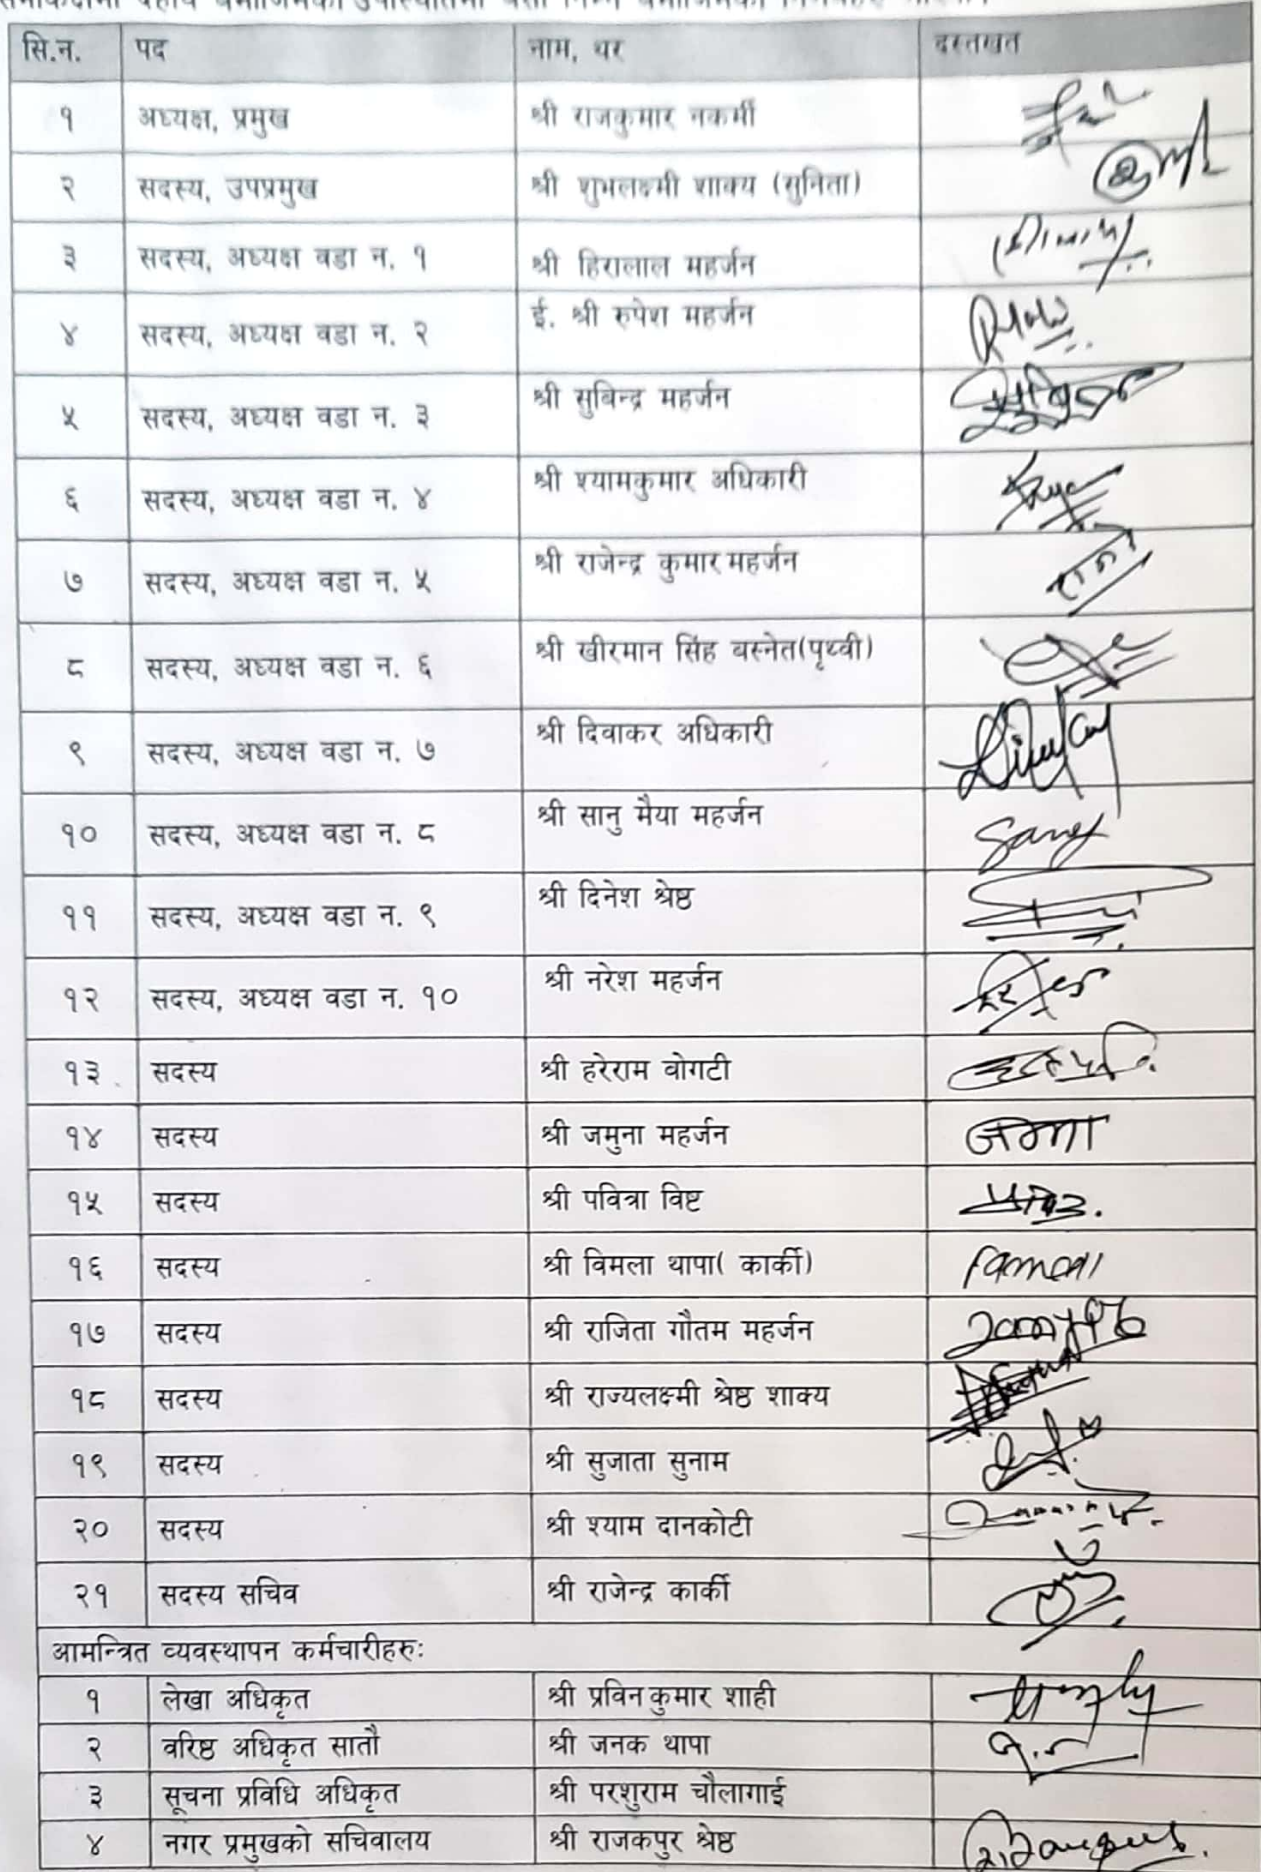 सि.न. पद नाम, थर दस्तखत
१ अध्यक्ष, प्रमुख श्री राजकुमार नकर्मी
२ सदस्य, उपप्रमुख श्री शुभलक्ष्मी शाक्य (सुनिता)
३ सदस्य, अध्यक्ष वडा न. १ श्री हिरालाल महर्जन
४ सदस्य, अध्यक्ष वडा न. २ ई. श्री रुपेश महर्जन
५ सदस्य, अध्यक्ष वडा न. ३ श्री सुबिन्द्र महर्जन
६ सदस्य, अध्यक्ष वडा न. ४ श्री श्यामकुमार अधिकारी
७ सदस्य, अध्यक्ष वडा न. ५ श्री राजेन्द्र कुमार महर्जन
८ सदस्य, अध्यक्ष वडा न. ६ श्री खीरमान सिंह बस्नेत(पृथ्वी)
९ सदस्य, अध्यक्ष वडा न. ७ श्री दिवाकर अधिकारी
१० सदस्य, अध्यक्ष वडा न. ८ श्री सानु मैया महर्जन
११ सदस्य, अध्यक्ष वडा न. ९ श्री दिनेश श्रेष्ठ
१२ सदस्य, अध्यक्ष वडा न. १० श्री नरेश महर्जन
१३ सदस्य श्री हरेराम वोगटी
१४ सदस्य श्री जमुना महर्जन
१५ सदस्य श्री पवित्रा विष्ट
१६ सदस्य श्री विमला थापा( कार्की)
१७ सदस्य श्री राजिता गौतम महर्जन
१८ सदस्य श्री राज्यलक्ष्मी श्रेष्ठ शाक्य
१९ सदस्य श्री सुजाता सुनाम
२० सदस्य श्री श्याम दानकोटी
२१ सदस्य सचिव श्री राजेन्द्र कार्की
आमन्त्रित व्यवस्थापन कर्मचारीहरु:
१ लेखा अधिकृत श्री प्रविन कुमार शाही
२ वरिष्ठ अधिकृत सातौ श्री जनक थापा
३ सूचना प्रविधि अधिकृत श्री परशुराम चौलागाई
४ नगर प्रमुखको सचिवालय श्री राजकपुर श्रेष्ठ